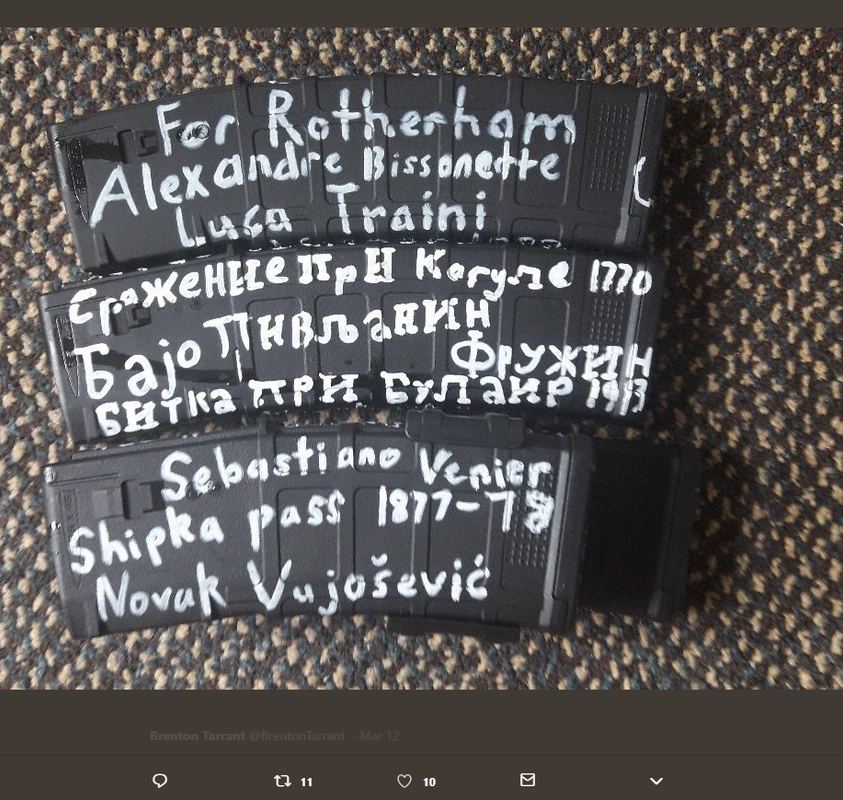 For Rotherham
Alexandre Bissonette
Luca Traini
сражение при Кагуле 1770
Бајо Пивљанин
Фружин
битка при Булаир 1913
Sebastiano Venier
Shipka pass 1877-78
Novak Vujošević
Brenton Tarrant @BrentonTarrant · Mar 12
11 10